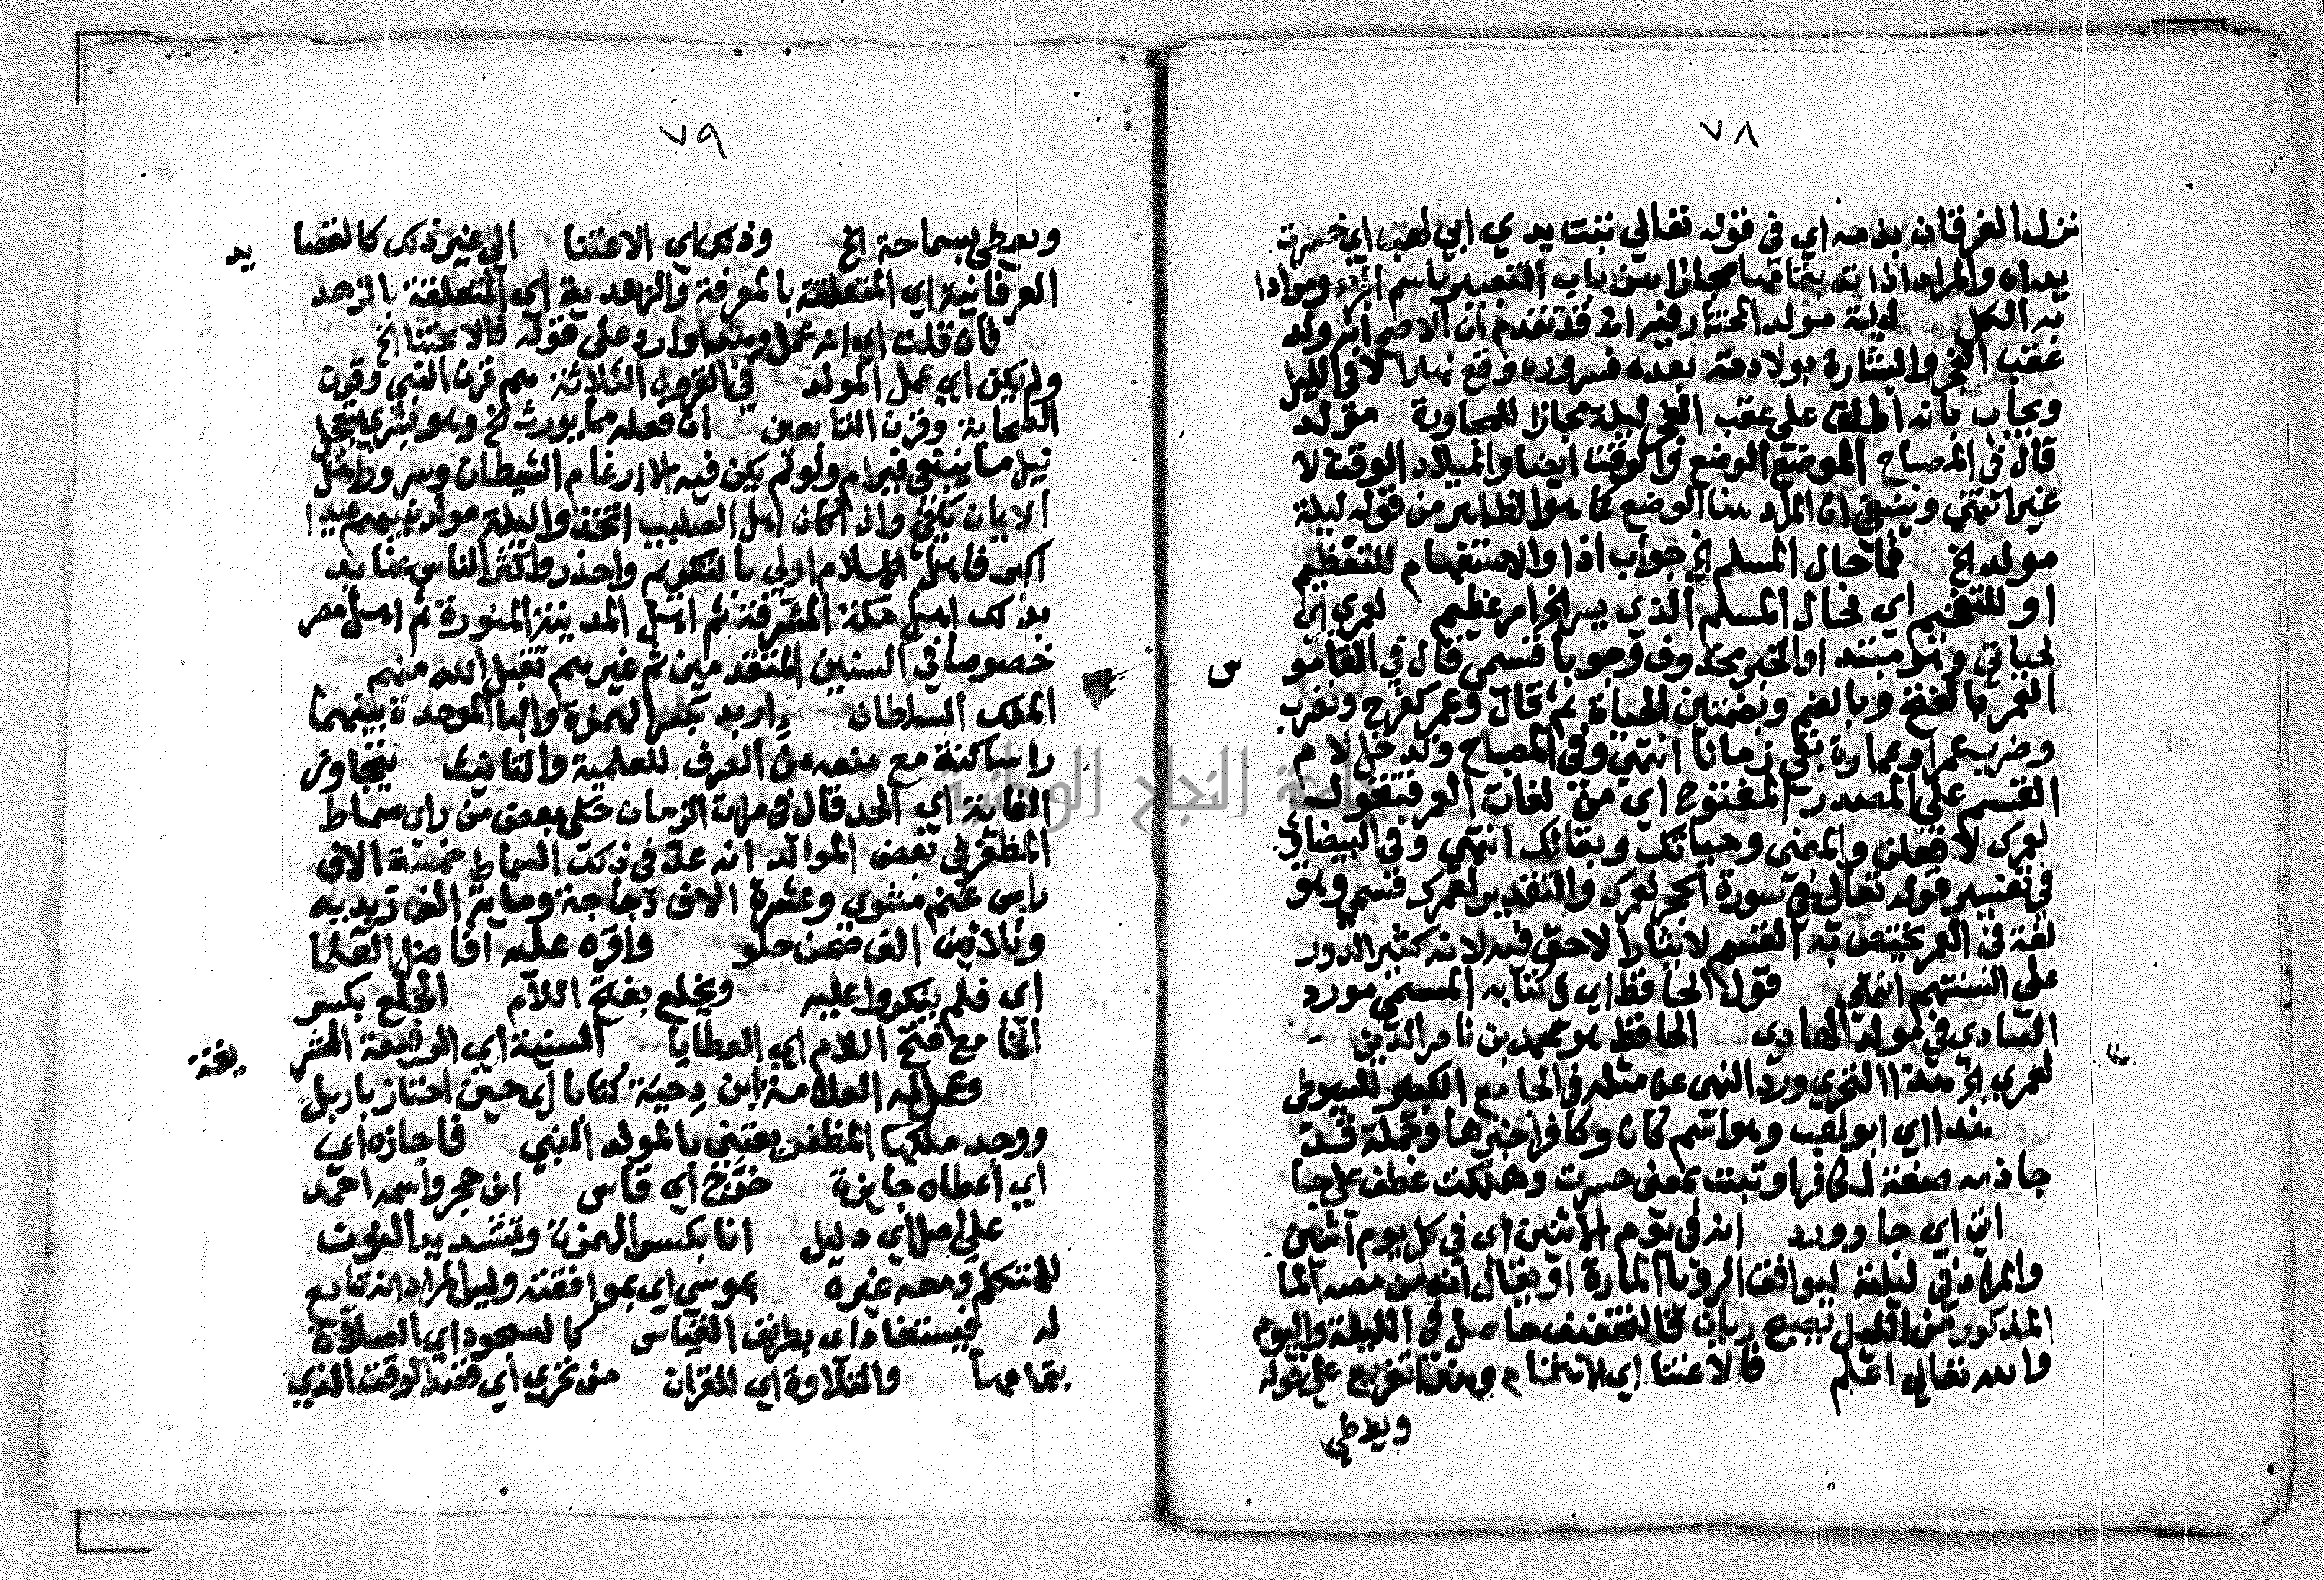 ٧٨
نزل القرقان بذمه اي في قوله تعالي تبت يدي ابي لهب اي خسرت
يداه والمراد اذا ته بتمامها مجازا من باب التعبير باسم الجزء ومرادا
به الكل ليلة مولد المختار فيه انه قد تقدم ان الاصح انه ولد
عقب الفجر والبشارة بولادته بعده فسروره وقع نهارا لا في الليل
ويجاب بانه اطلق علي عقب الفجر ليلة مجازا للمجاورة مولد
قال في المصباح الموضع الوضع والوقت ايضا والميلاد الوقت لا
غير انتهي وينبغي ان المراد هنا الوضع كما هو الظاهر من قوله ليلة
مولد الخ فما حال المسلم الخ جواب اذا والاستفهام للتعظيم
او للتفخيم اي فحال المسلم الذي يسر الخ امر عظيم لعمري اي
لحياتي وهو مبتدء او الخبر محذوف وجوبا قسمي قال في القامو
س
العمر بالفتح وبالضم وبضمتين الحياة ثم قال وعمر كفرح ونضرب
وضرب عمرا وعمارة بقي زمانا انتهي وفي المصباح وتدخل لام
القسم علي المصدر المفتوح اي من لغات العمر فتقول
لعمرك لافعلن والمعني وحياتك وبقائك انتهي وفي البيضاوي
في تفسير قوله تعالي في سورة الحجر لعمرك والتقدير لعمرك قسمي وهو
لغة في العمر يختص به القسم لايثار الاخف فيه لانه كثير الدور
علي السنتهم انتهي قول الحافظ اي في كتابه المسمي مورد
الصادي في مولد الهادي الحافظ هو محمد بن ناصر الدين
لعمري الخ ورد النهي عن مثله في الجامع الكبير للسيوطي
هذا اي ابو لهب وهو اسم كان وكافرا خبرها وجملة قد
جا ذمه صفة لكافرا وتبت بمعني خسرت وهلكت عطف علي جا
اتي اي جا وورد انه في يوم الاثنين اي في كل يوم اثنين
والمراد في ليلته ليوافق الرويا المارة او يقال انه من مصه الما
المذكور من الليل يصبح ريان فالتخفيف حاصل في الليلة واليوم
والله تعالي اعلم فالاعتنا اي الاهتمام وهذا تفريع علي قوله
ويعطي
٧٩
ويعطي بسماحة الخ وذلك اي الاعتنا الي غير ذلك كالقصا
يد
العرفانية اي المتعلقة بالمعرفة والزهدية اي المتعلقة بالزهد
فان قلت اي انه عمل وهذا وارد علي قوله فالاعتنا الخ
ولم يكن اي عمل المولد في القرون الثلاثة هم قرن النبي وقرن
الصحابة وقرن التابعين ان فعله مما يورث الخ وهو بشري بتعجيل
نيل ما ينبغي ويرام ولو لم يكن فيه الا ارغام الشيطان وسرور اهل
الايمان يكفي واذ اكان اهل الصليب اتخذوا ليلة مولد نبيهم عيدا
اكبر فاهل الاسلام اولي بالتكريم واجدر واكثر الناس عناية
بذلك اهل مكة المشرفة ثم اهل المدينة المنورة ثم اهل مصر
خصوصا في السنين المتقدمين ثم غيرهم تقبل الله منهم
الملك السلطان اربد بكسر الهمزة والبا الموحدة بينهما
را ساكنة مع منعه من الصرف للعلمية والتانيث يتجاوز
الغاية اي الحد قال في مراة الزمان حكي بعض من راي سماط
المظفر في بعض الموالد انه عد في ذلك السماط خمسة الاف
راس غنم مشوي وعشرة الاف دجاجة وماية الف زبدية
وثلاثين الف صحن حلو واقره عليه افاضل العلما
اي فلم ينكروا عليه ويخلع بفتح اللام الخلع بكسر
الخا مع فتح اللام اي العطايا السنية اي الرفيعة الشر
يفة
وعمل له العلامة ابن دحية كتابا اي حين اجتاز باربل
ووجد ملكها المظفر يعتني بالمولد النبي فاجازه اي
اي اعطاه جايزة خرج اي قاس ابن حجر واسمه احمد
علي اصل اي دليل انا بكسر الهمزة وتشديد النون
للمتكلم ومعه غيره بموسي اي بموافقته وليس المراد انه تابع
له فيستفاد اي بطريق القياس كالسجود اي الصلاة
بتمامها والتلاوة اي للقران من تحري اي قصد الوقت الذي